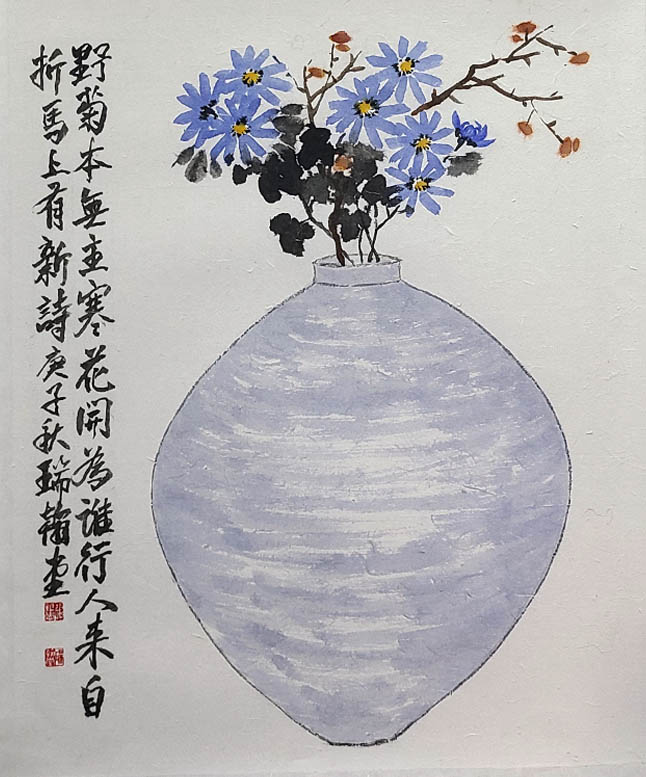 野菊本無主寒花開為誰行人来自
折馬上有新詩庚子秋瑞翰畫